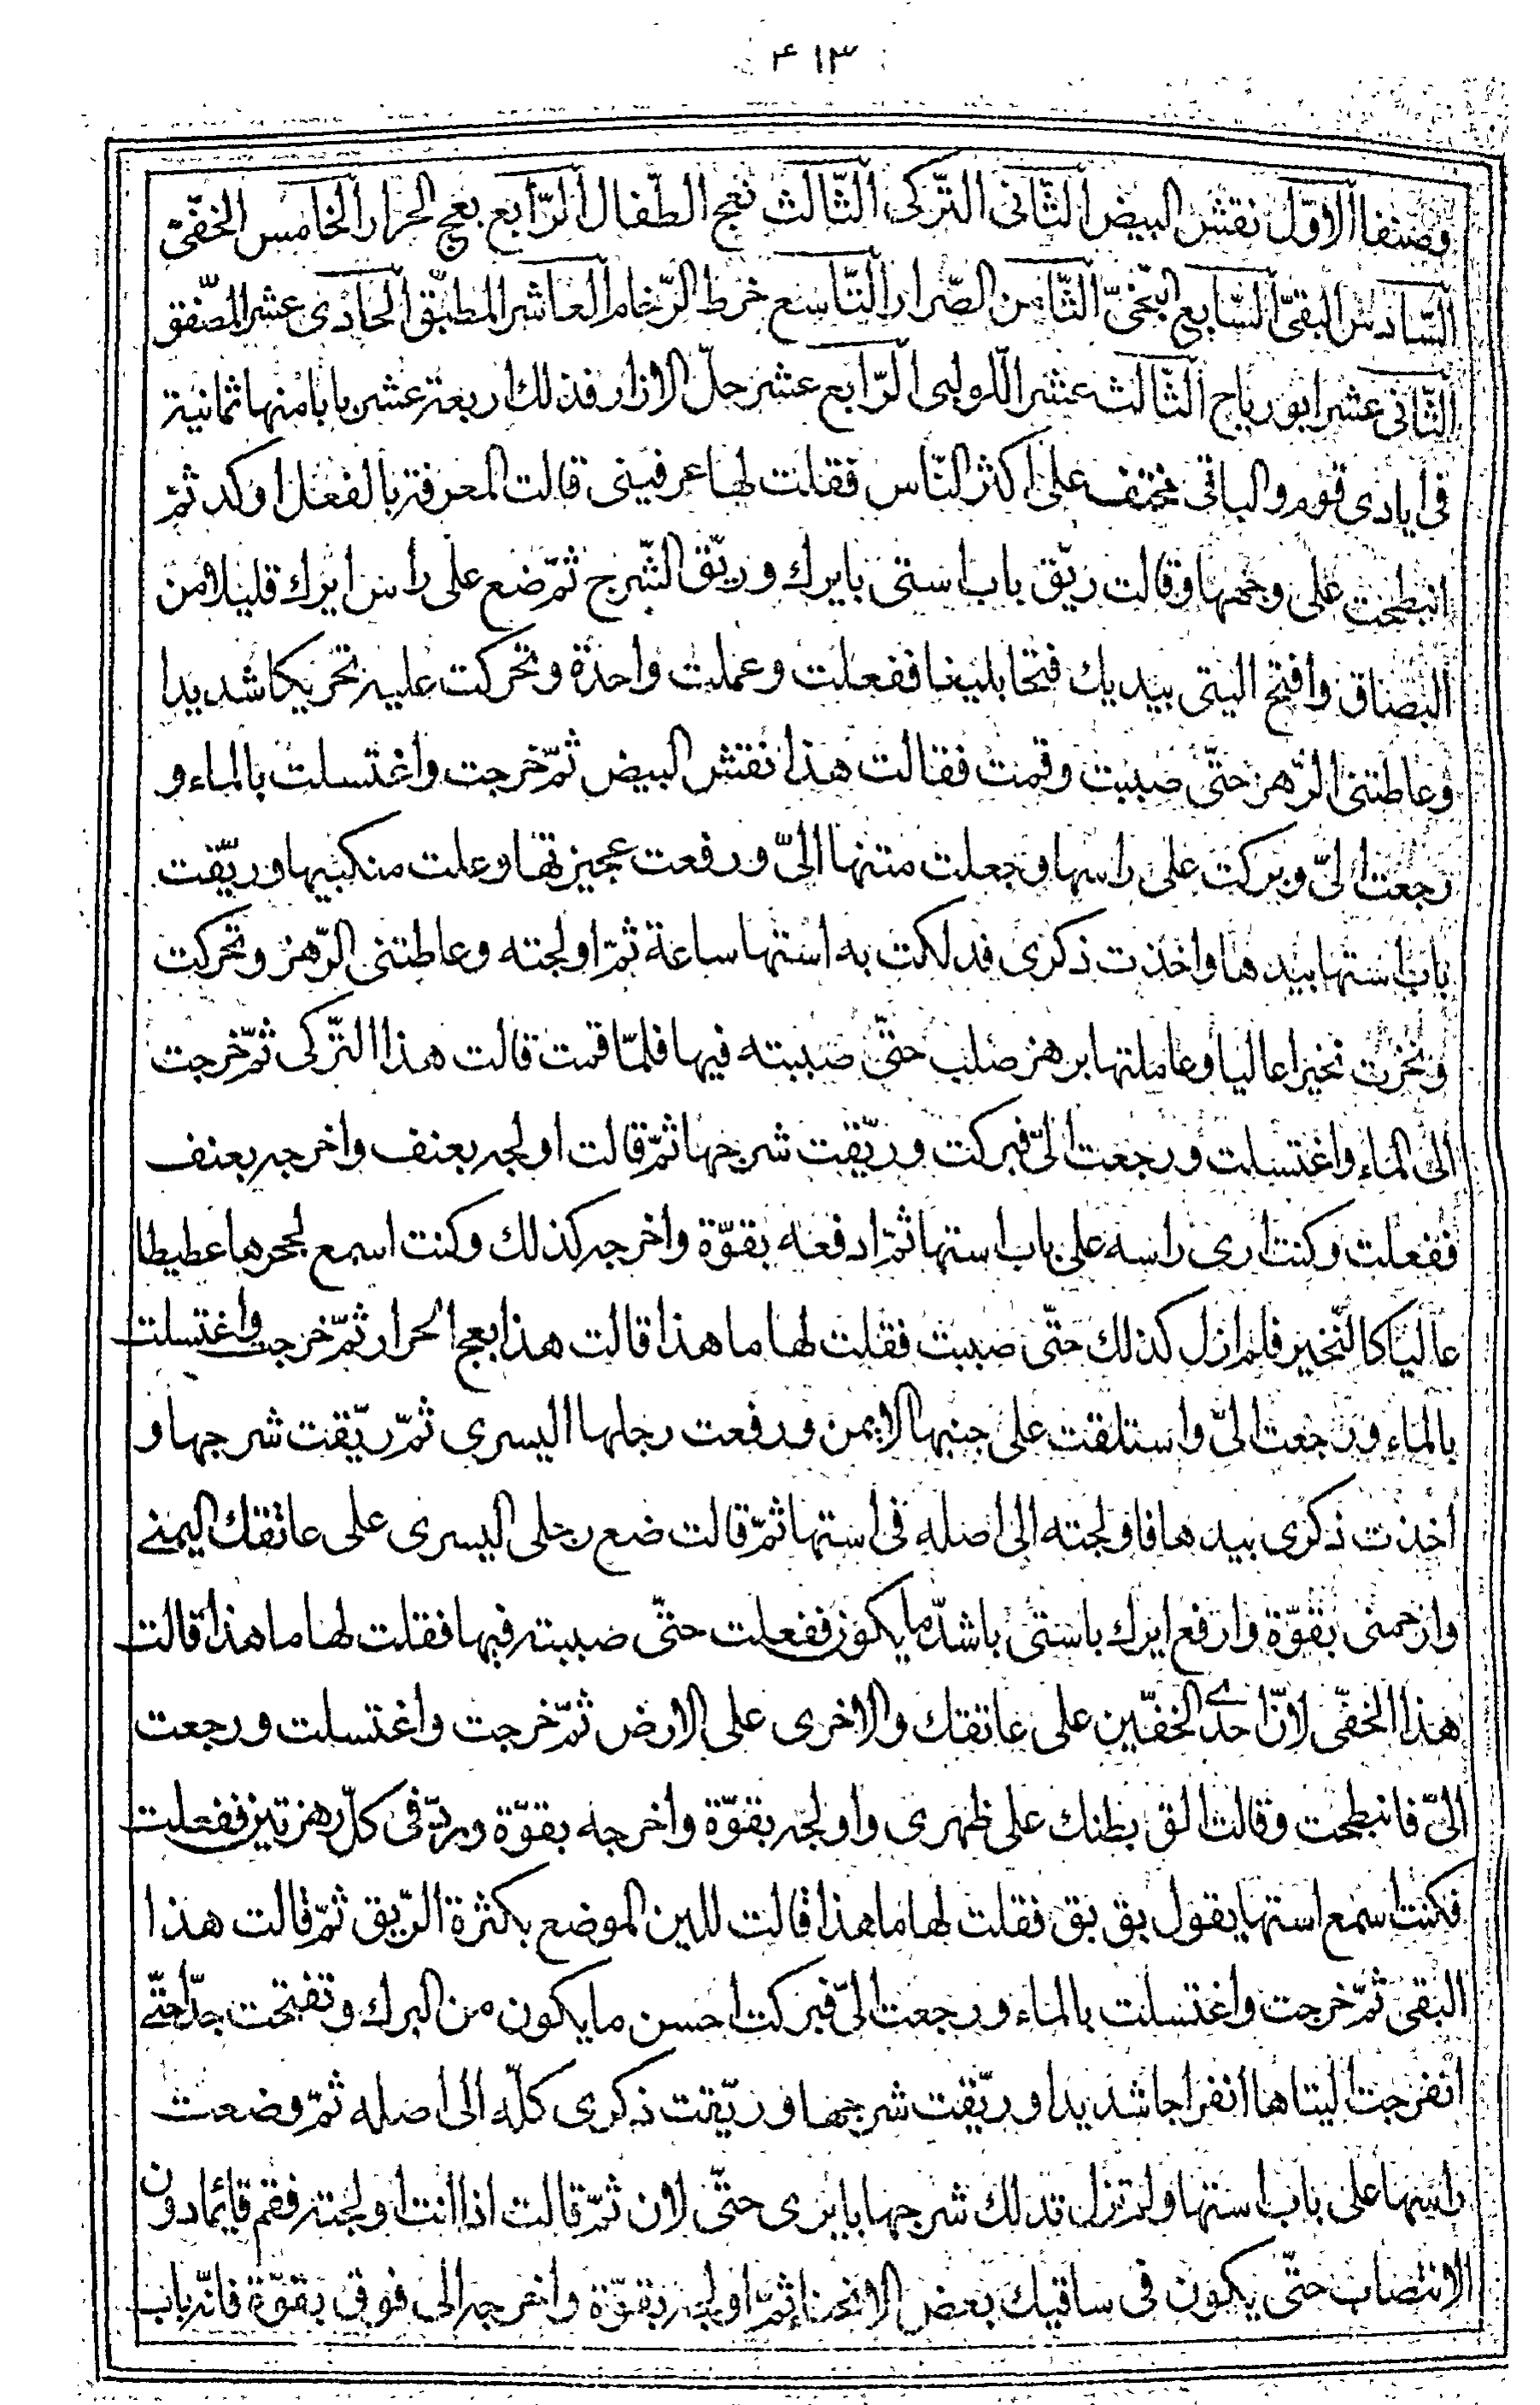 ٤١٣
وصنفا الاوّل نقش البيض الثّانى التّركى الثّالث نعج الطّفال الرّابع بعج الحرار الخامس الخفّىّ
السّادس البقىّ السّابع البخّىّ الثّامن الصّرار التّاسع خرط الرّخام العاشر المطبّق الحادى عشر المصّفق
الثّانى عشر ابو رياح الثّالث عشر اللّولبى الرّابع عشر حلّ الازار فذلك اربعة عشر بابا منها ثمانية
فى ايادى قوم والباقى مختف على اكثر النّاس فقلت لها عرفينى قالت المعرفة بالفعل اوكد ثمّ
انبطحت على وجهها وقالت ريّق باب استى بايرك وريّق الشّرج ثمّ ضع على رأس ايرك قليلا من
البصاق وافتح اليتى بيديك فتحا بليغا ففعلت وعملت واحدة وتحركت عليه تحريكا شديدا
وعاطتنى الرّهز حتّى صببت وقمت فقالت هذا نقش البيض ثمّ خرجت واغتسلت بالماء و
رجعت الىّ وبركت على راسها وجعلت متنها الىّ ورفعت عجيزتها وعلت منكبيها وريّقت
باب استها بيدها واخذت ذكرى فدلكت به استها ساعة ثمّ اولجته وعاطتنى الرّهز وتحركت
ونخرت نخيرا عاليا وعاملتها برهز صلب حتّى صببته فيها فلمّا قمت قالت هذا التّركى ثمّ خرجت
الى الماء واغتسلت ورجعت الىّ فبركت وريّقت شرجها ثمّ قالت اولجه بعنف واخرجه بعنف
ففعلت وكنت ارى راسه على باب استها ثمّ ادفعه بقوّة واخرجه كذلك وكنت اسمع لجحرها عطيطا
عاليا كالنّخير فلم ازل كذلك حتّى صببت فقلت لها ما هذا قالت هذا بعج الحرار ثمّ خرجت واغتسلت
بالماء ورجعت الىّ واستلقت على جنبها الايمن ورفعت رجلها اليسرى ثمّ ريّقت شرجها و
اخذت ذكرى بيدها فاولجته الى اصله فى استها ثمّ قالت ضع رجلى اليسرى على عاتقك اليمنى
وازحمنى بقوّة وارفع ايرك باستى باشدّ ما يكون ففعلت حتّى صببته فيها فقلت لها ما هذا قالت
هذا الخفّى لانّ احدى الخفّين على عاتقك والاخرى على الارض ثمّ خرجت واغتسلت ورجعت
الىّ فانبطحت وقالت الق بطنك على ظهرى واولجه بقوّة واخرجه بقوّة وردّ فى كلّ رهزتين ففعلت
فكنت اسمع استها يقول بق بق فقلت لها ما هذا قالت للين الموضع بكثرة الرّيق ثمّ قالت هذا
البقى ثمّ خرجت واغتسلت بالماء ورجعت الىّ فبركت احسن ما يكون من البرك وتفتحت جدّا حتّى
انفرجت اليتاها انفراجا شديدا وريّقت شرجها وريّقت ذكرى كلّه الى اصله ثمّ وضعت
راسها على باب استها ولم تزل تدلك شرجها بايرى حتّى لان ثمّ قالت اذا انت اولجته فقم قايما دون
الانتصاب حتّى يكون فى ساقيك بعض الانحناء ثمّ اولجه بقوّة واخرجه الى فوق بقوّة فانّه باب